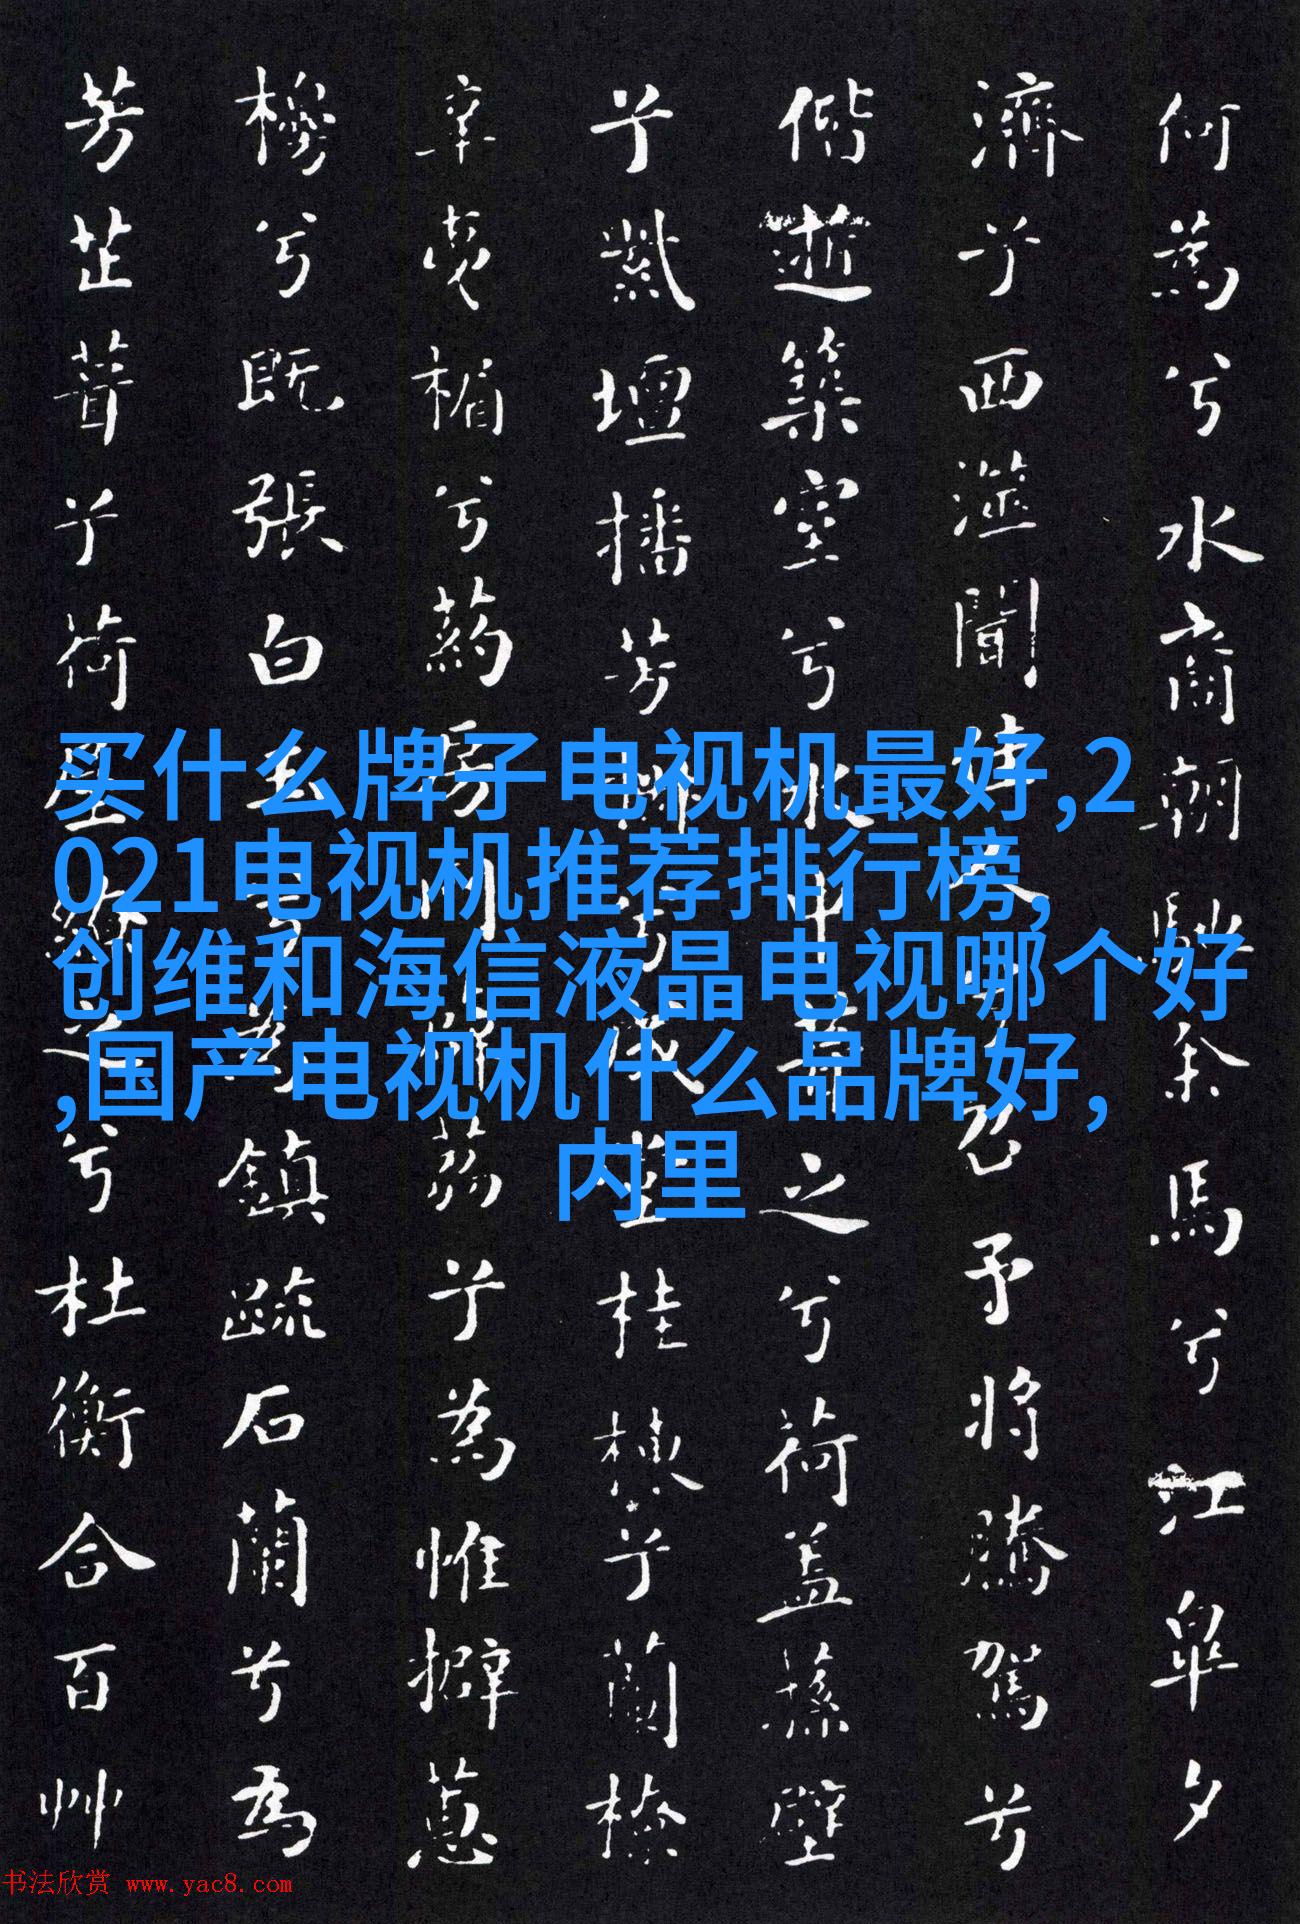 何為兮水裔朝馳余馬兮江皋夕
濟兮西澨聞佳人兮召予將騰駕兮
偕逝築室兮水中葺之兮荷蓋蓀壁
兮紫壇播芳椒兮成堂桂棟兮蘭橑
辛夷楣兮葯房罔薜荔兮為帷擗蕙
櫋兮既張白玉兮為鎮疏石蘭兮為
芳芷葺兮荷屋繚之兮杜衡合百艸
买什么牌子电视机最好,2
021电视机推荐排行榜,
创维和海信液晶电视哪个好
,国产电视机什么品牌好,
内里
书法欣赏 www.yac8.com